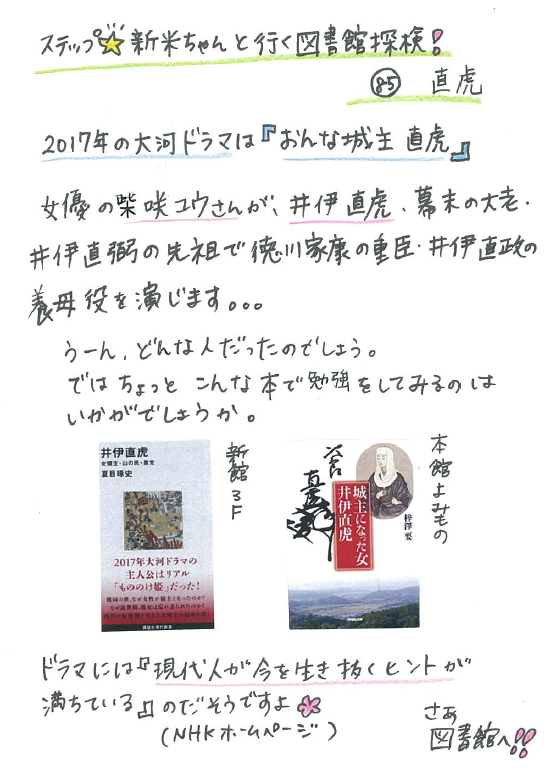 ステップ☆新米ちゃんと行く図書館探検!
85 直虎
2017年の大河ドラマは『おんな城主 直虎』
女優の柴咲コウさんが、井伊直虎、幕末の大老・
井伊直弼の先祖で徳川家康の重臣・井伊直政の
養母役を演じます。。。
うーん、どんな人だったのでしょう。
では ちょっと こんな本で勉強をしてみるのは
いかがでしょうか。
新館3F
井伊直虎
女領主・山の民・悪党
夏目琢史
2017年大河ドラマの
主人公はリアル
「もののけ姫」だった!
講談社現代新書
本館よみもの
城主になった女
井伊直虎
梓澤要
NHK出版
ドラマには『現代人が今を生き抜くヒントが
満ちている』のだそうですよ
(NHKホームページ)
さぁ
図書館へ!!